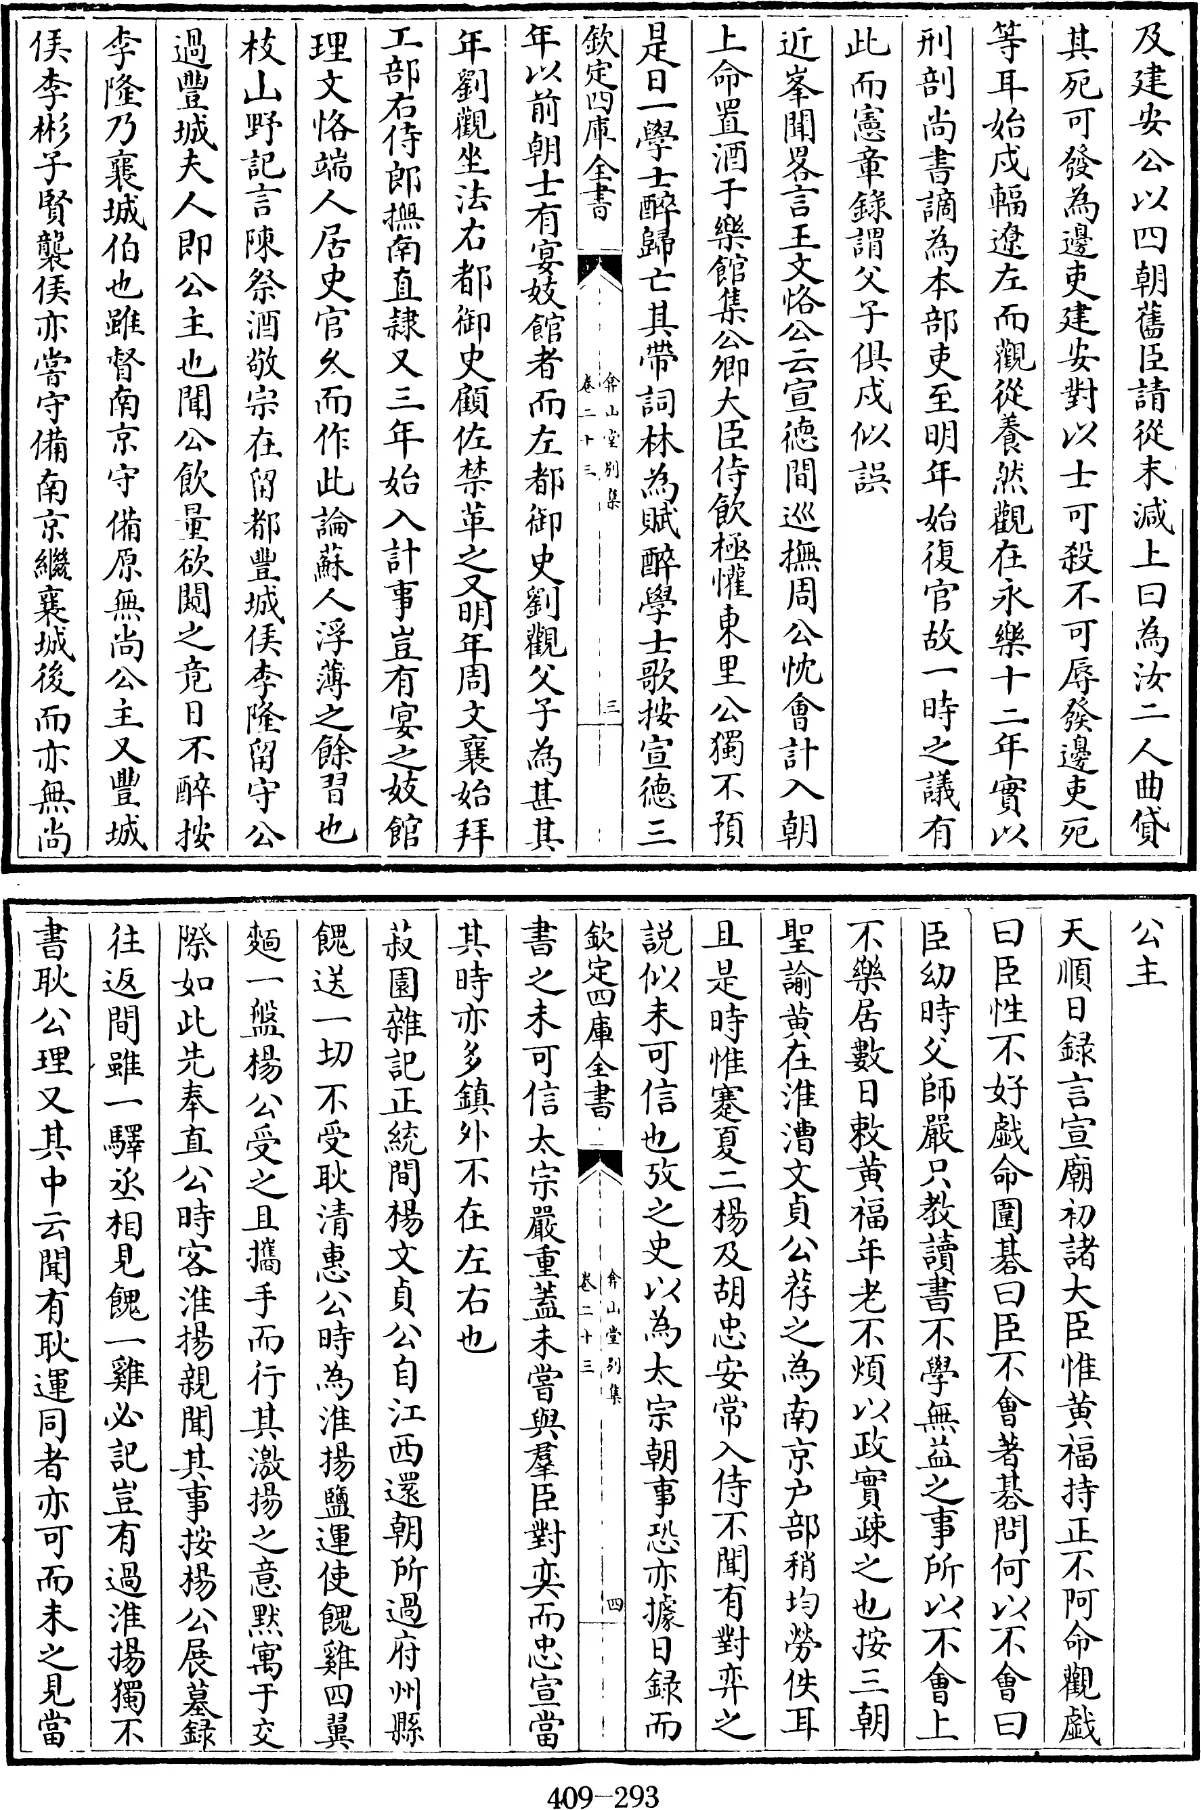 及建安公以四朝舊臣請從末減上曰為汝二人曲貸
其死可發為邊吏建安對以士可殺不可辱發邊吏死
等耳始戍輻遼左而觀從養然觀在永樂十二年實以
刑剖尚書謫為本部吏至明年始復官故一時之議有
此而憲章錄謂父子俱戍似誤
近峯聞畧言王文恪公云宣德間巡撫周公忱會計入朝
上命置酒于樂館集公卿大臣侍飲極懽東里公獨不預
是日一學士醉歸亡其帶詞林為賦醉學士歌按宣德三
欽定四庫全書
弇山堂别集
卷二十三
三
年以前朝士有宴妓館者而左都御史劉觀父子為甚其
年劉觀坐法右都御史顧佐禁革之又明年周文襄始拜
工部右侍郎撫南直隷又三年始入計事豈有宴之妓館
理文恪端人居史官久而作此論蘇人浮薄之餘習也
枝山野記言陳祭酒敬宗在留都豐城侯李隆留守公
過豐城夫人即公主也聞公飲量欲閲之竟日不醉按
李隆乃襄城伯也雖督南京守備原無尚公主又豐城
侯李彬子賢襲侯亦嘗守備南京繼襄城後而亦無尚
公主
天順日録言宣廟初諸大臣惟黄福持正不阿命觀戱
曰臣性不好戱命圍碁曰臣不會著碁問何以不會曰
臣幼時父師嚴只教讀書不學無益之事所以不會上
不樂居數日敕黄福年老不煩以政實疎之也按三朝
聖諭黄在淮漕文貞公荐之為南京户部稍均勞佚耳
且是時惟蹇夏二楊及胡忠安常入侍不聞有對弈之
説似未可信也攷之史以為太宗朝事恐亦據日録而
欽定四庫全書
弇山堂别集
卷二十三
四
書之未可信太宗嚴重蓋未嘗與羣臣對奕而忠宣當
其時亦多鎮外不在左右也
菽園雜記正統間楊文貞公自江西還朝所過府州縣
餽送一切不受耿清惠公時為淮揚鹽運使餽雞四翼
麵一盤楊公受之且攜手而行其激揚之意默寓于交
際如此先奉直公時客淮揚親聞其事按楊公展墓録
往返間雖一驛丞相見餽一雞必記豈有過淮揚獨不
書耿公理又其中云聞有耿運同者亦可而未之見當
409-293